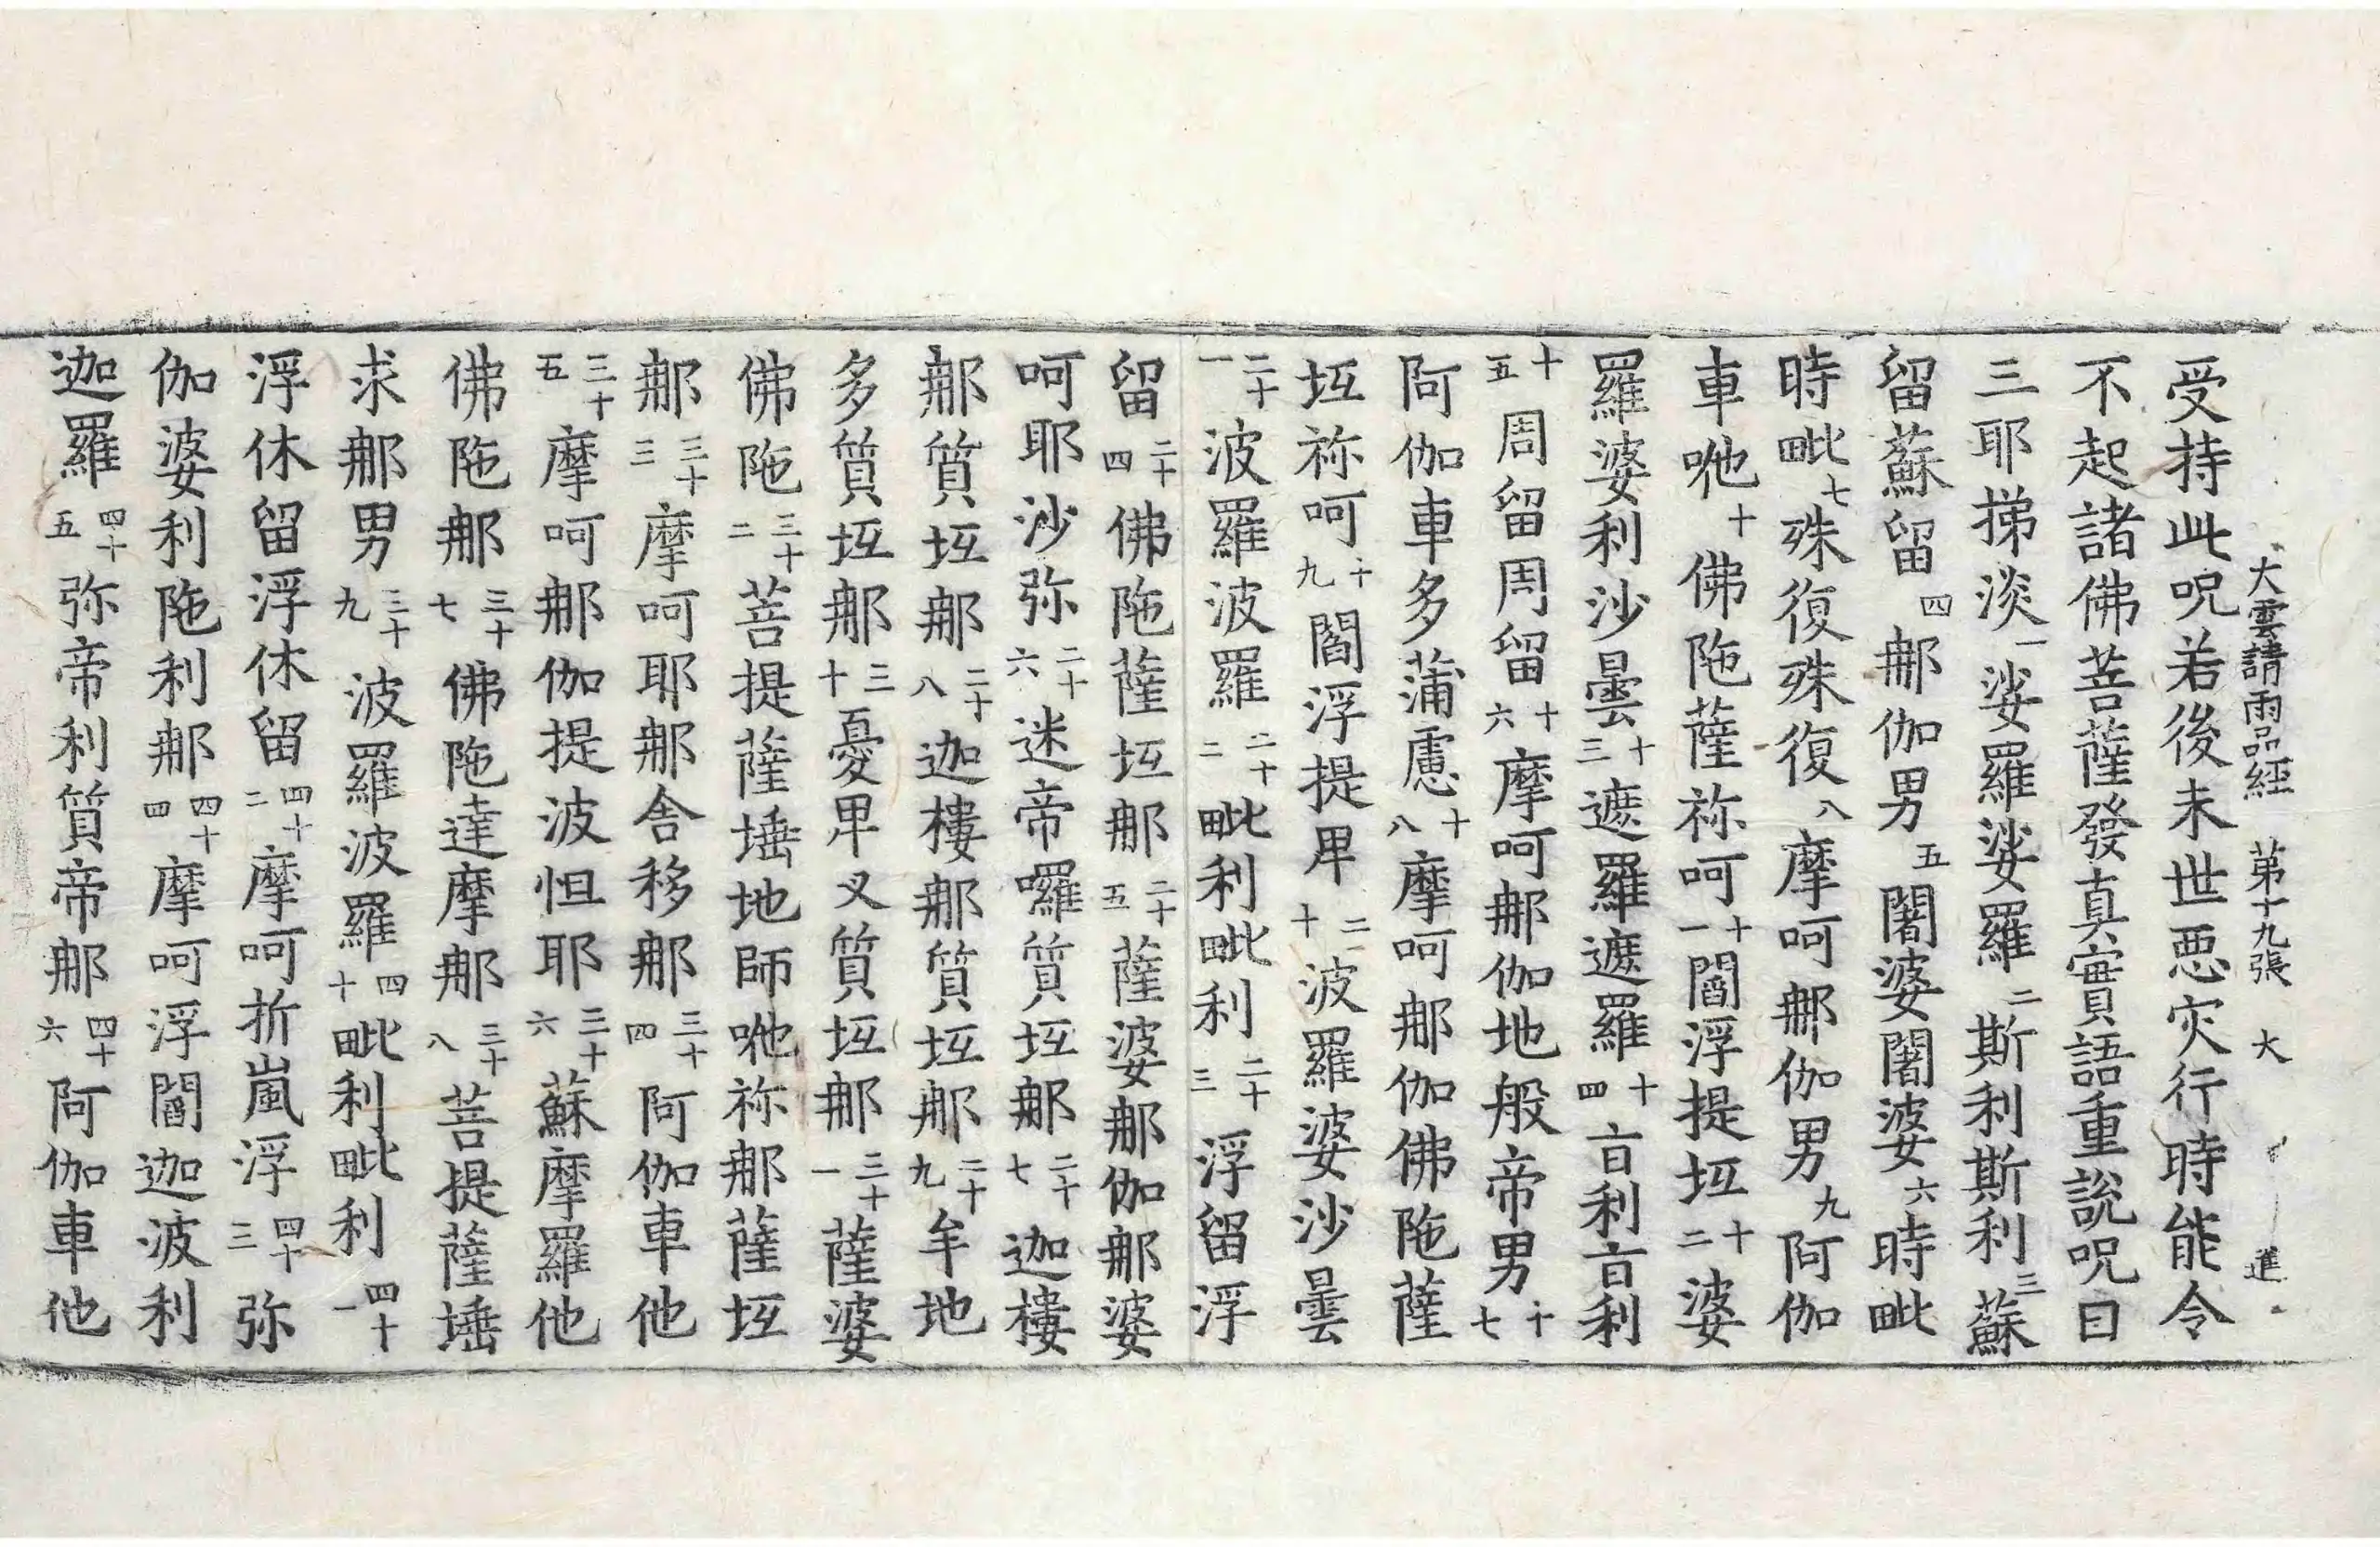 大雲請雨品經　第十九張　大　進
受持此呪若後末世惡灾行時能令
不起諸佛菩薩發真實語重說呪曰
三耶挮淡一娑羅娑羅二斯利斯利三蘇
留蘇留四那伽男五闍婆闍婆六時毗
時毗七殊復殊復八摩呵那伽男九阿伽
車呲十佛陁薩祢呵十一閻浮提坘十二婆
羅婆利沙曇十三遮羅遮羅十四盲利盲利
十五周留周留十六摩呵那伽地般帝男十七
阿伽車多蒲慮十八摩呵那伽佛陁薩
坘祢呵十九閻浮提卑二十波羅婆沙曇
二十一波羅波羅二十二毗利毗利二十三浮留浮
留二十四佛陁薩坘那二十五薩婆那伽那婆
呵耶沙弥二十六迷帝囉質坘那二十七迦樓
那質坘那二十八迦樓那質坘那二十九牟地
多質坘那三十憂卑叉質坘那三十一薩婆
佛陁三十二菩提薩埵地師呲祢那薩坘
那三十三摩呵耶那舍移那三十四阿伽車他
三十五摩呵那伽提波怛耶三十六蘇摩羅他
佛陁那三十七佛陁達摩那三十八菩提薩埵
求那男三十九波羅波羅四十毗利毗利四十一
浮休留浮休留四十二摩呵折嵐浮四十三弥
伽婆利陁利那四十四摩呵浮闍迦波利
迦羅四十五弥帝利質帝那四十六阿伽車他